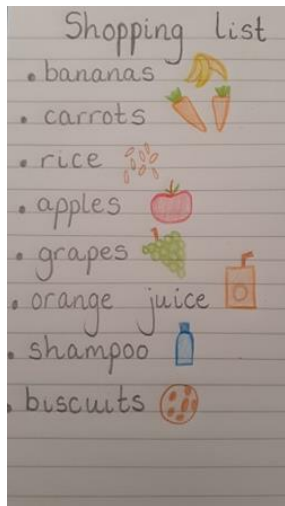 Shopping list
• bananas
• carrots
• rice
• apples
• grapes
• orange juice
• shampoo
• biscuits